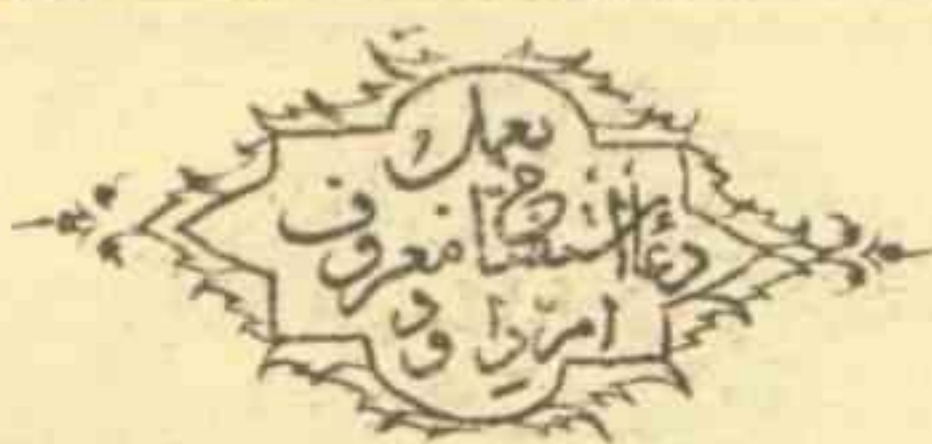 بعمل
دعاء استفتاح معروف
ام داود